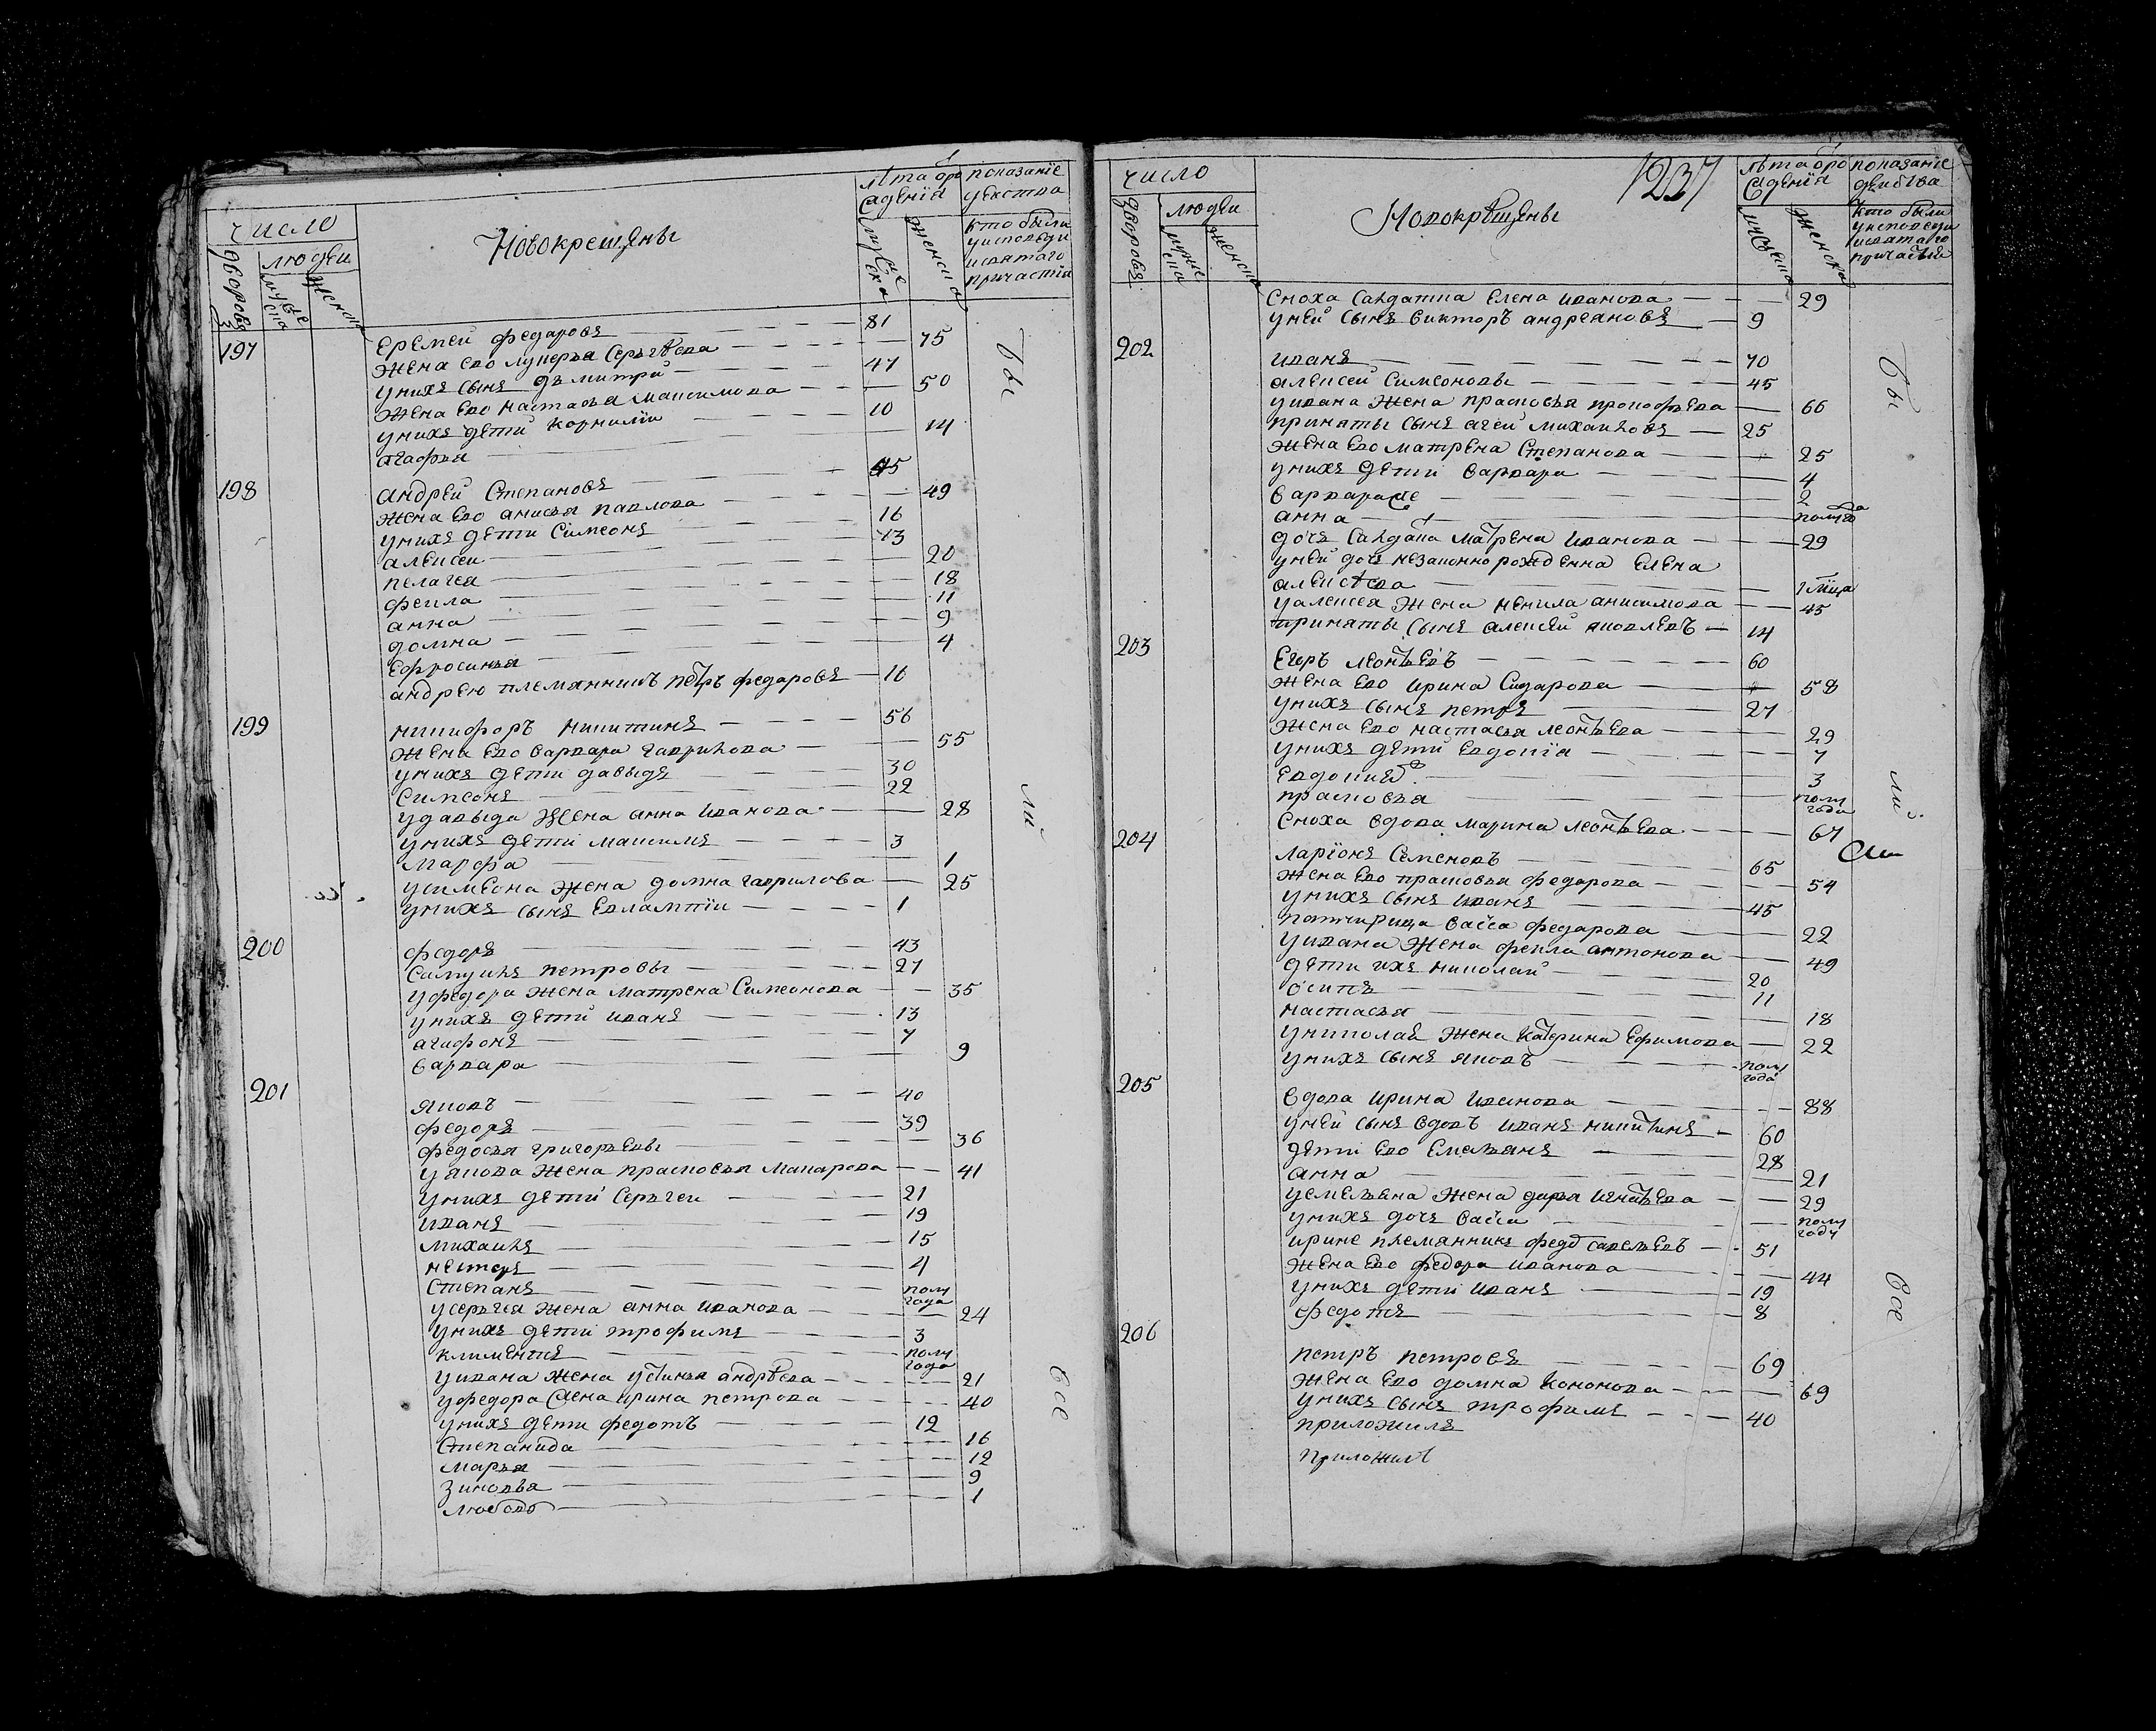 число
дворовъ
людеи
мужеска
женска
Новокрещены
лѣта отро
жденїя
мужеска
женска
показанїе
кто были
у исповеди
и святаго
причастїя
197 Еремеи федаровъ 81
жена ево лукерья Сергѣева 75
у нихъ сынъ дьмитри 47
жена ево настасья маѯимова 50
у нихъ дети корнилїи 10
агафья 14
198 андреи Степановъ 45
жена ево анисья павлова 49
у нихъ дети Симеонъ 16
алеѯеи 13
пелагея 20
фекла 18
анна 11
домна 9
Ефросинья 4
андрею племянникъ петръ федаровъ 16
199 никифоръ никитинъ 56
жена ево варвара гаврилова 55
у нихъ дети давыдъ 30
симеонъ 22
у давыда жена анна иванова 28
у нихъ дети маѯимъ 3
марфа 1
у симеона жена домна гаврилова 25
у нихъ сынъ Евлампїи 1
200 федоръ 43
самуилъ петровы 27
у федора жена матрена Симеонова 35
у нихъ дети иванъ 13
агафонъ 7
варвара 9
201 яковъ 40
федоръ 39
федосья григорьевы 36
у якова жена прасковья макарова 41
у нихъ дети Сергеи 21
иванъ 19
михаилъ 15
несторъ 4
Степанъ полугода
у сергея жена анна иванова 24
у нихъ дети трофимъ 3
климентъ полугода
у ивана жена устинья андрѣева 21
у федора жена ирина петрова 40
у нихъ дети федотъ 12
Степанида 16
марья 12
зиновья 9
любовь 1
бы
ли
все
число
дворовъ
людеи
мужеска
женска
Новокрещены
1237
лѣта отро
жденїя
мужеска
женска
показанїе
действа
кто были
у исповеди
и святаго
причастїя
Сноха Салдатка Елена иванова 29
у неи сынъ викторъ андреановъ 9
202 иванъ 70
алеѯеи Симеоновы 45
у ивана жена прасковья прокофьева 66
приняты сынъ агеи михаиловъ 25
жена ево матрена Степанова 25
у нихъ дети варвара 4
варвара же 2
анна полугода
дочь Салдатка матрена иванова 29
у неи дочь незаконно рожденна Елена
алеѯѣева 1 мїца
у алеѯея жена ненила анисимова 45
приняты сынъ алеѯеи яковлевъ 14
203 Егоръ леонтьевъ 60
жена ево ирина Сидарова 58
у нихъ сынъ петръ 27
жена ево настасья леонтьева 29
у нихъ дети Евдокїя 7
Евдокия 3
прасковья полугода
Сноха вдова марина леонтьева 67
204 ларїонъ Семеновъ 65
жена ево прасковья федарова 54
у нихъ сынъ иванъ 45
патчирица васса федарова 22
у ивана жена фекла антонова 49
дети ихъ николаи 20
осипъ 11
настасья 18
у николая жена катерина Ефимова 22
у нихъ сынъ яковъ полугода
205 вдова ирина иванова 88
у неи сынъ вдовъ иванъ никитинъ 60
дети ево Емельянъ 28
анна 21
у емельяна жена дарья игнатьева 29
у нихъ дочь васса полугоду
ирине племянникъ федотъ савельевъ 51
жена ево федора иванова 44
у нихъ дети иванъ 19
федотъ 8
206 петръ петровъ 69
жена ево домна кононова 69
у нихъ сынъ трофимъ 40
приложилъ
приложилъ
бы
ли
все